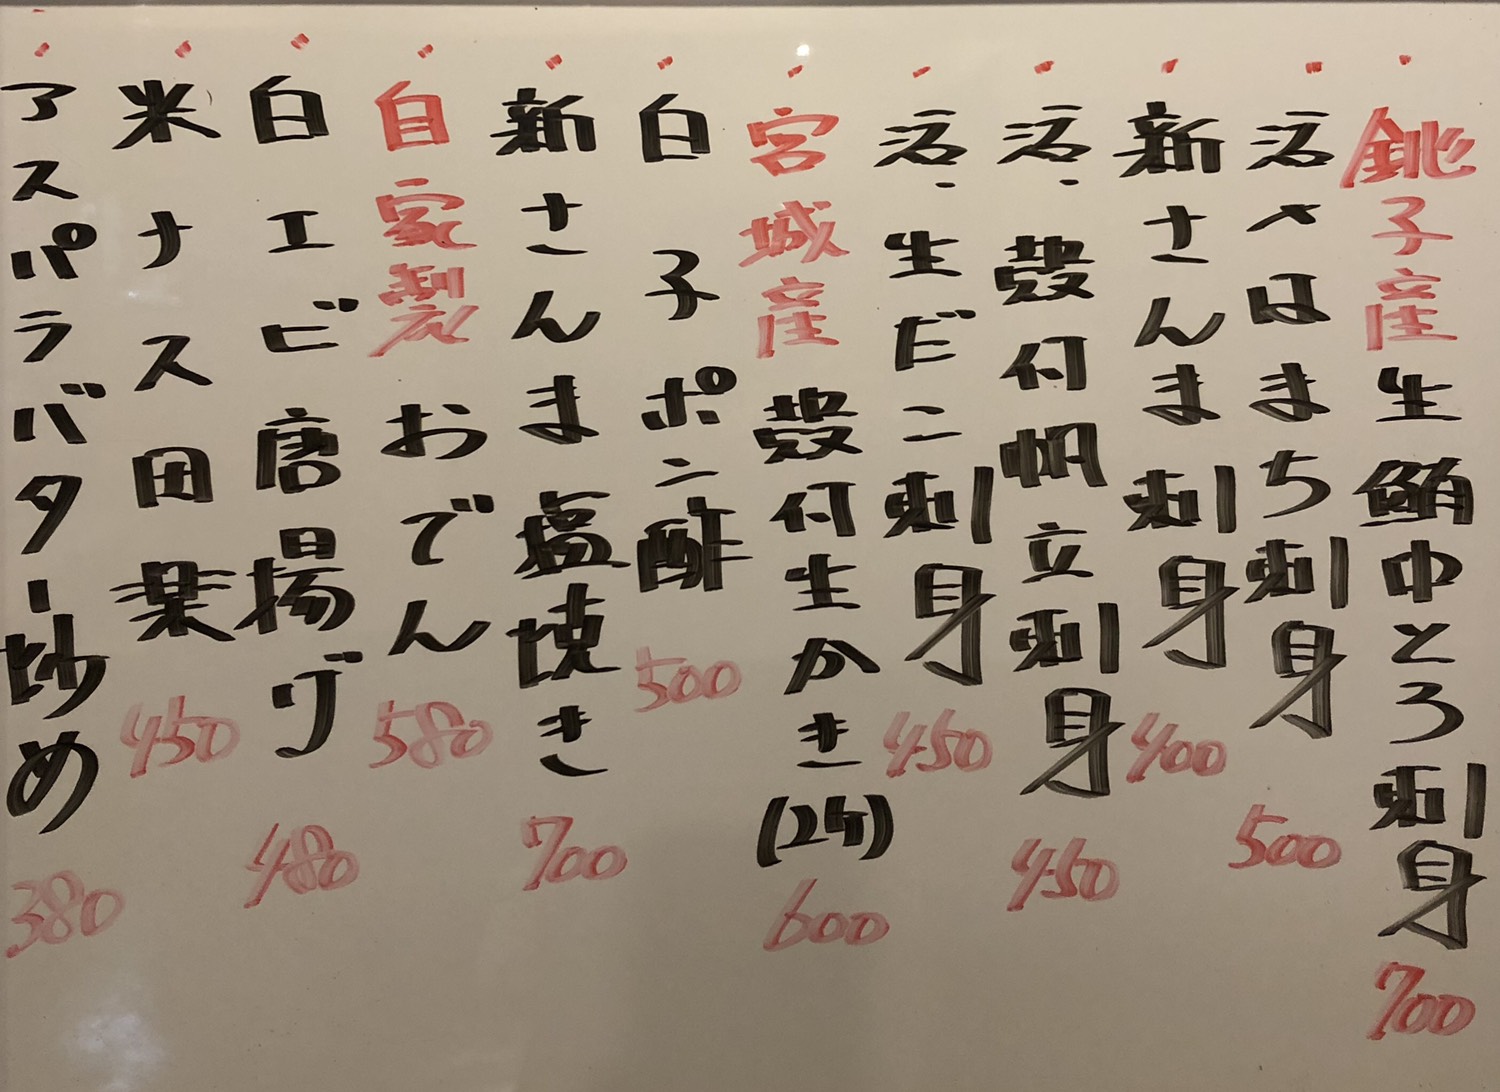 銚子産生鮪中とろ刺身 700
活〆はまち刺身 500
新さんま刺身 400
活、殻付帆立刺身 450
活、生だこ刺身 450
宮城産殻付生かき(2ケ) 600
白子ポン酢 500
新さんま塩焼き 700
自家製おでん 580
白エビ唐揚げ 480
米ナス田楽 450
アスパラバター炒め 380